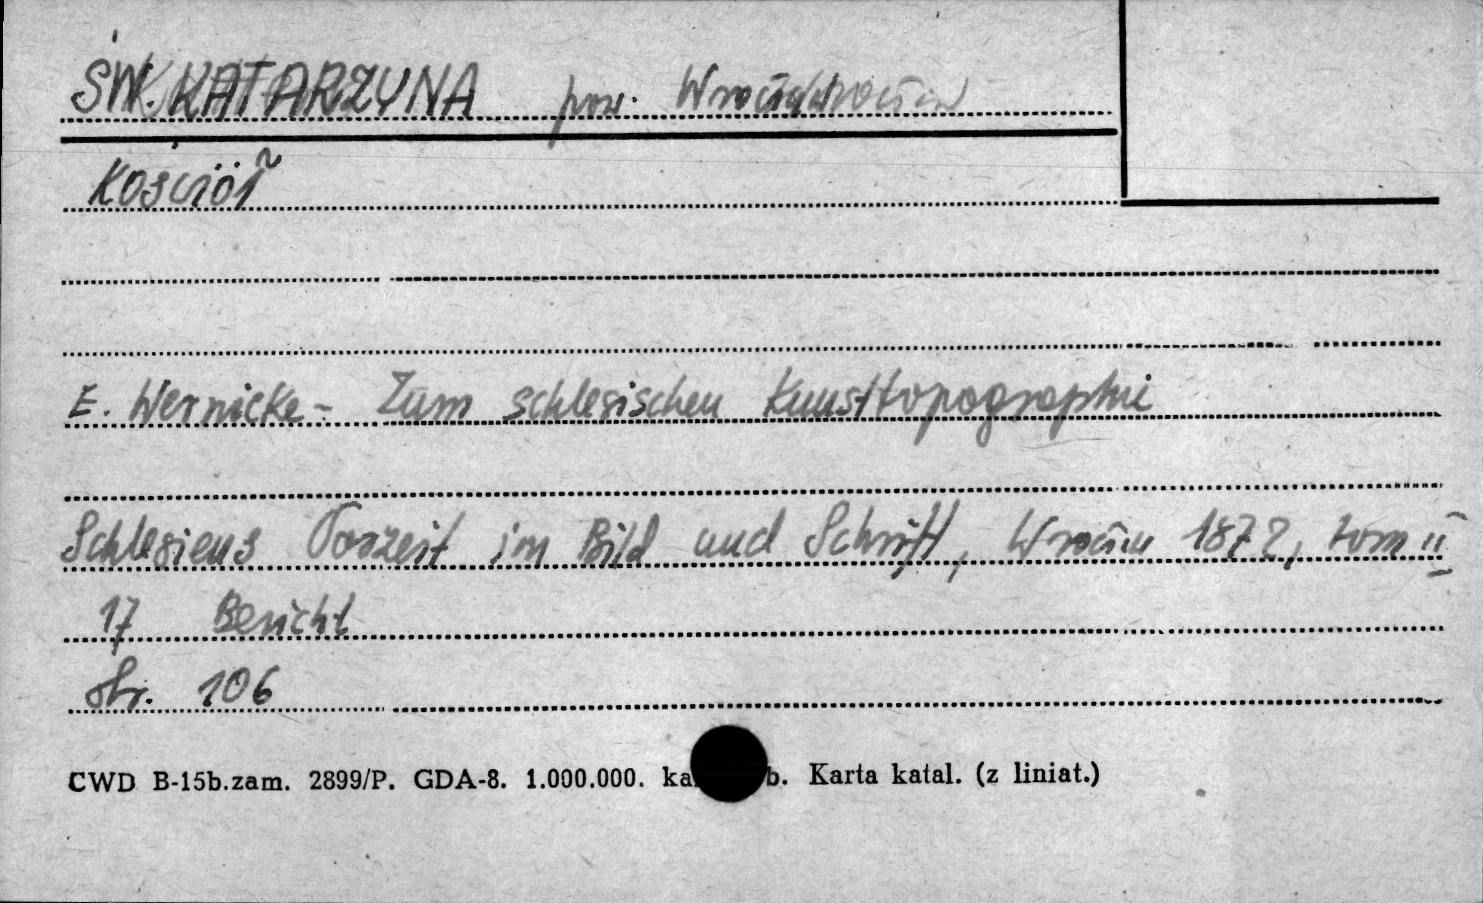 ŚW. KATARZYNA pow. Wrocław
Kościół
E. Wernicke - Zum schlesischen Kunsttopographie
Schlesiens Vorzeit im Bild und Schrift, Wrocław 1872, tom II
17 Bericht
str. 106
CWD B-15b.zam. 2899/P. GDA-8. 1.000.000. ka b. Karta katal. (z liniat.)